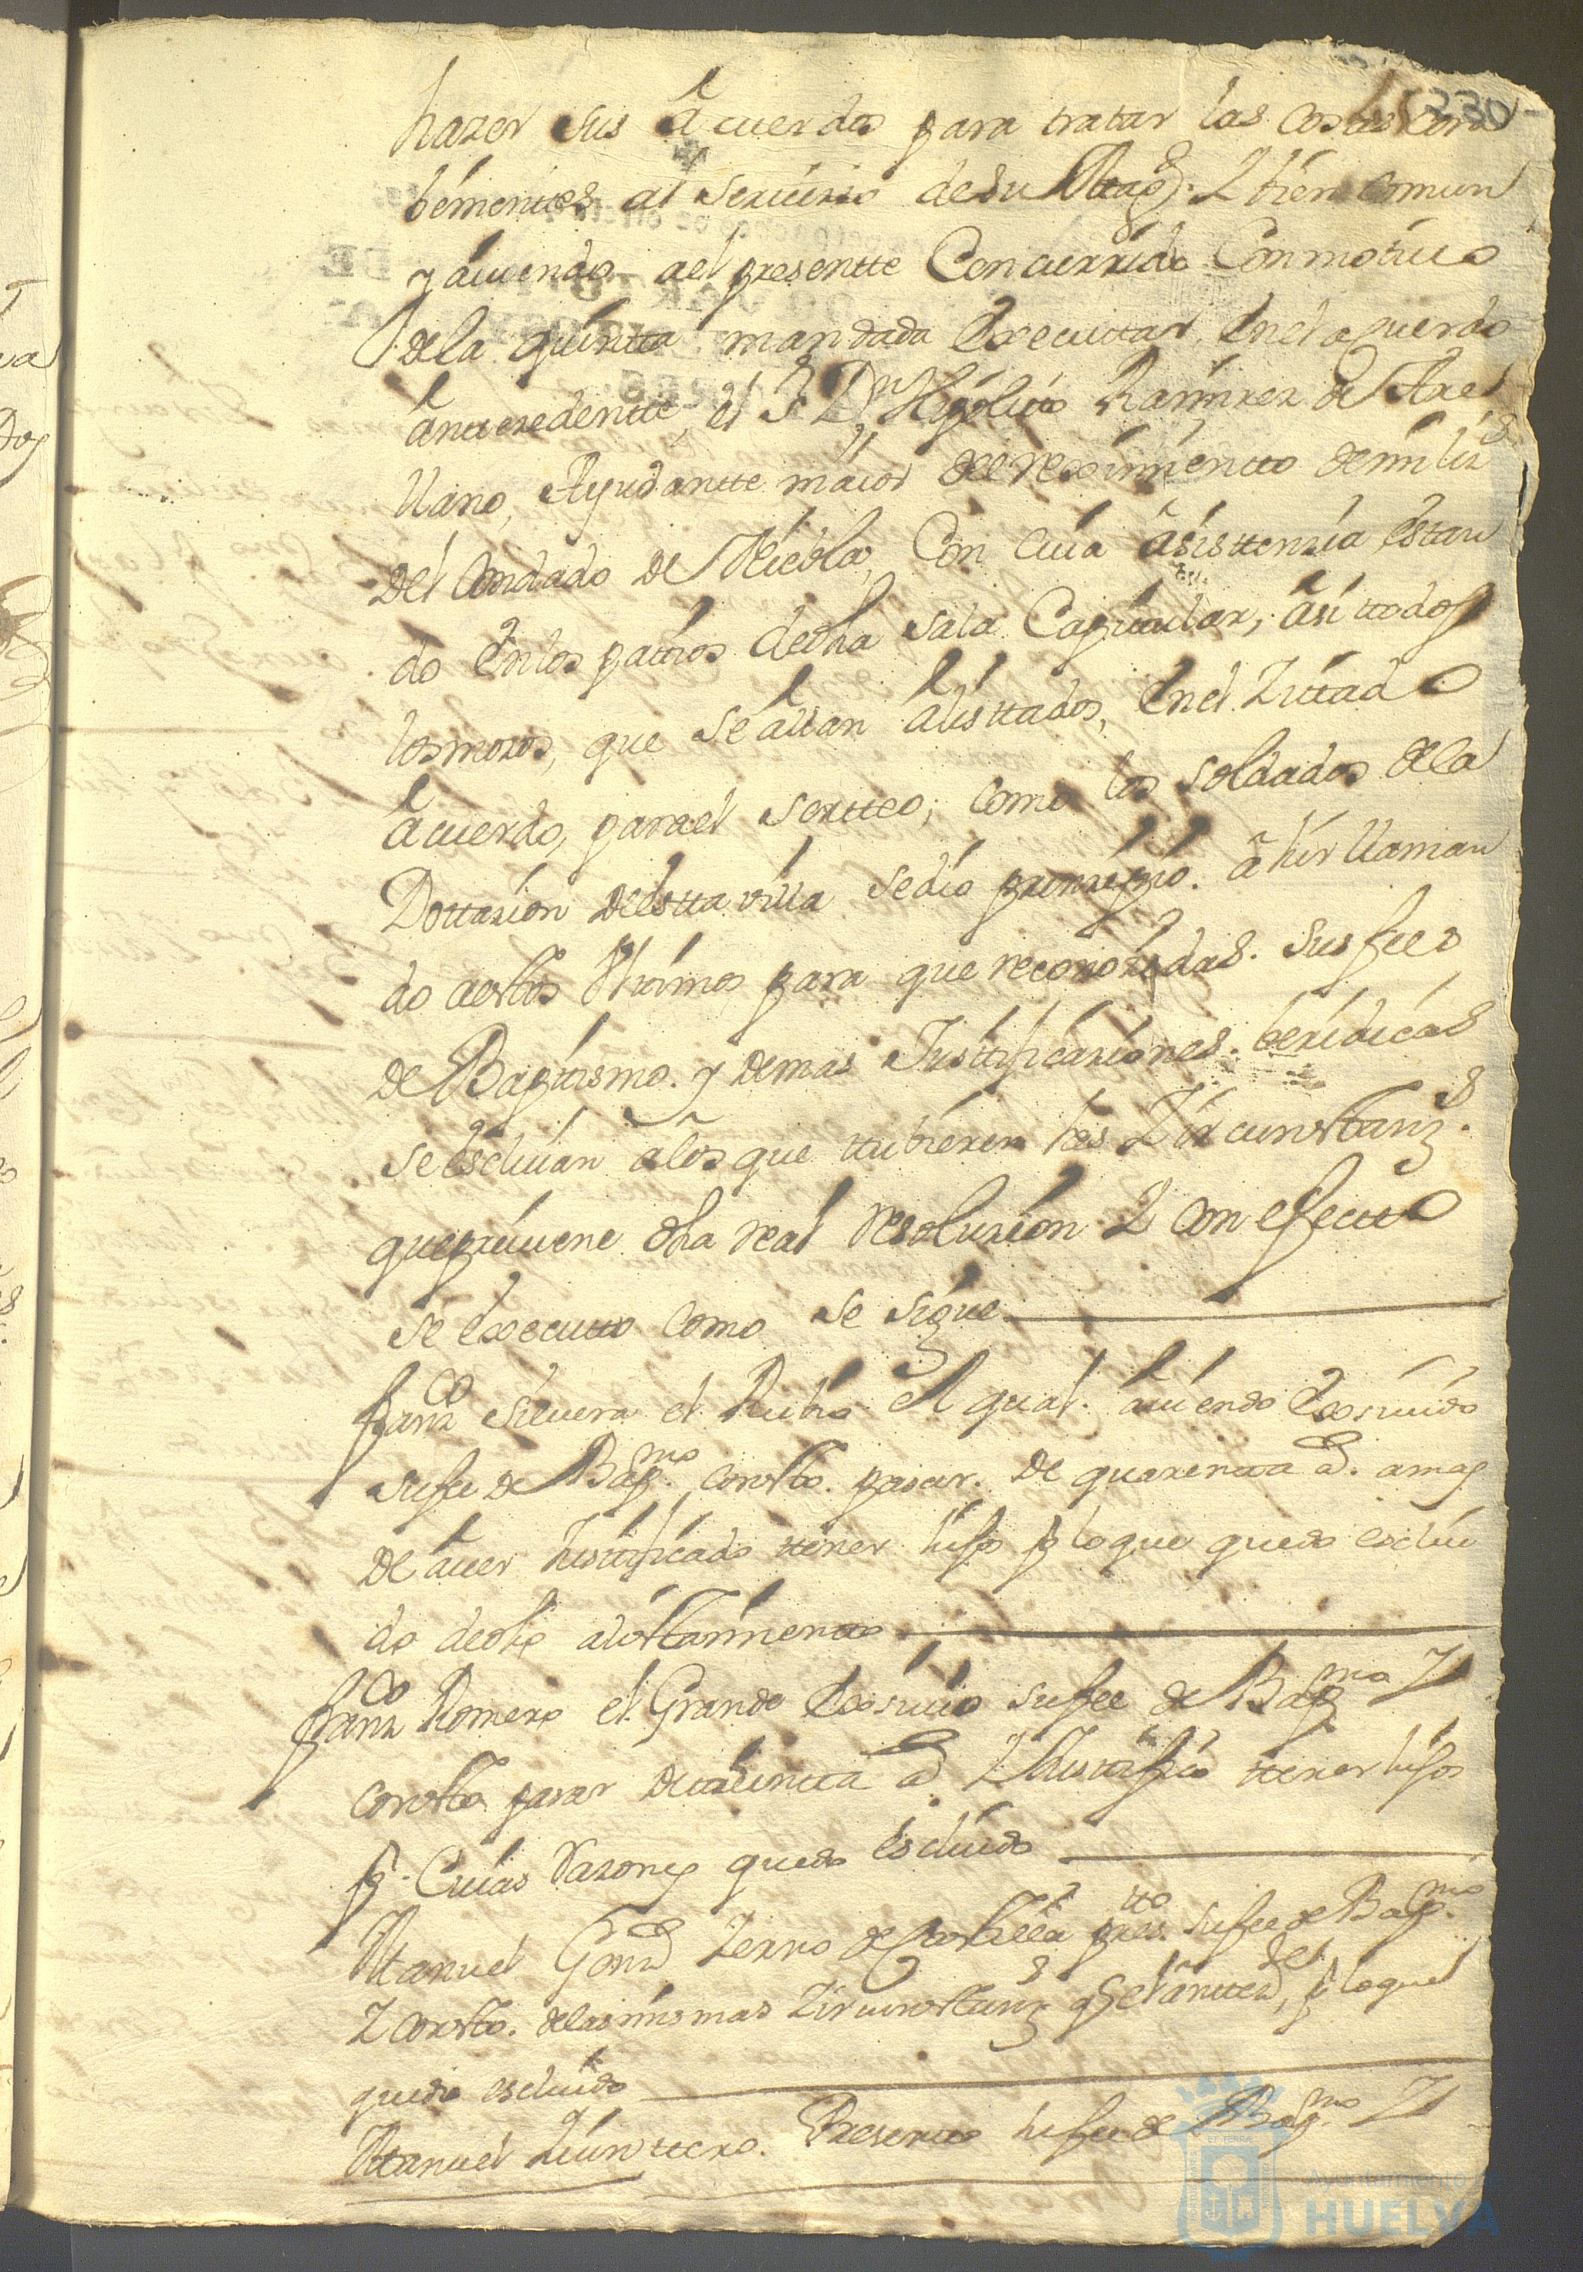 330
hazer sus acuerdos para tratar las cosas con
benientes al seruizio de su Magd. Z bien comun
y auiendo al presentte Concurrido Con motiuo
de la quintta mandada Executtar, En el aquerdo
anttezedentte, el Sr. Dn. Hipolito Ramirez de Arel
llano, Ayudantte maior del reximientto de miliz.s
del Condado de Niebla, Con cuia asisttenzia, estan
do En los pattios de dha sala Capitular, asi ttodos
los mozos, que se allan alisttados, En el Zittado
acuerdo, para el sortteo; como los soldados de la
Dottazion de estta villa se dio prinzipio. a hir llaman
do a estos Vltimos para que reconozidas. sus fees
de Baptismo. y demas Justificaziones. beridicas
se Escluian a los que ttubieren las Zircunstanz.s
que preuiene dha real resoluzion Z con efectto
se Executto como se sigue
Franz.co Siluera el Rubio el qual. auiendo Exsiuido
su fee de Bap.mo consto. pasar. de quarentta a.s a mas
de auer Justificado ttener hijo p lo que quedo esclui
do de dho alistamientto
Franz.co Romero el Grande Exsiuio su fee de Bap.mo Z
consto pasar de quarentta a.s Z Justifico ttener hijos
p. Cuias razones quedo escluido
Manuel Gonz.s Zerno de Costilla pres.tto su fee de Bap.mo
Z consto. de las mismas Zircunstanz.s q el anttez.del, p lo que
quedo escluido
Manuel Quinttero. Presentto su fee de Bap.mo Z
Ayuntamiento de
HUELVA